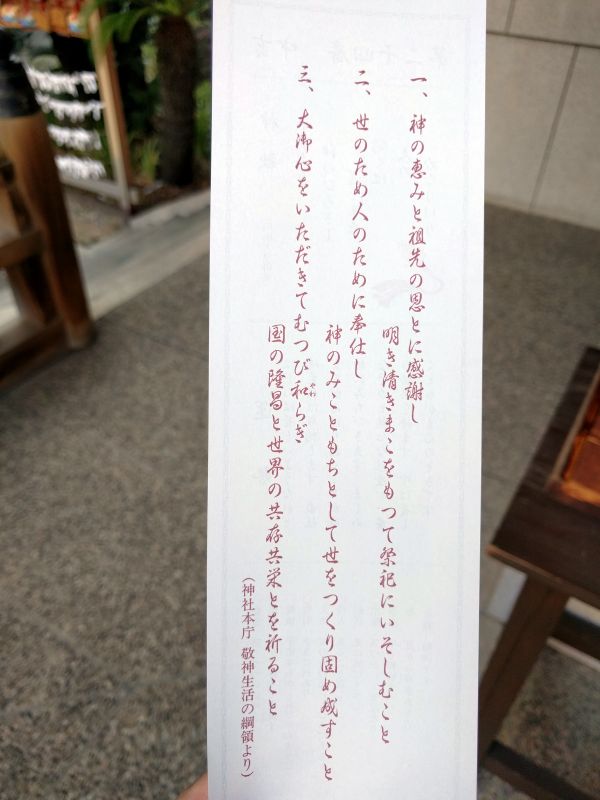 一、神の恵みと祖先の恩とに感謝し
明き清きまこをもつて祭祀にいそしむこと
二、世のため人のために奉仕し
神のみこともちとして世をつくり固め成すこと
三、大御心をいただきてむつび和らぎ
やわ
国の隆昌と世界の共存共栄とを祈ること
（神社本庁 敬神生活の綱領より）